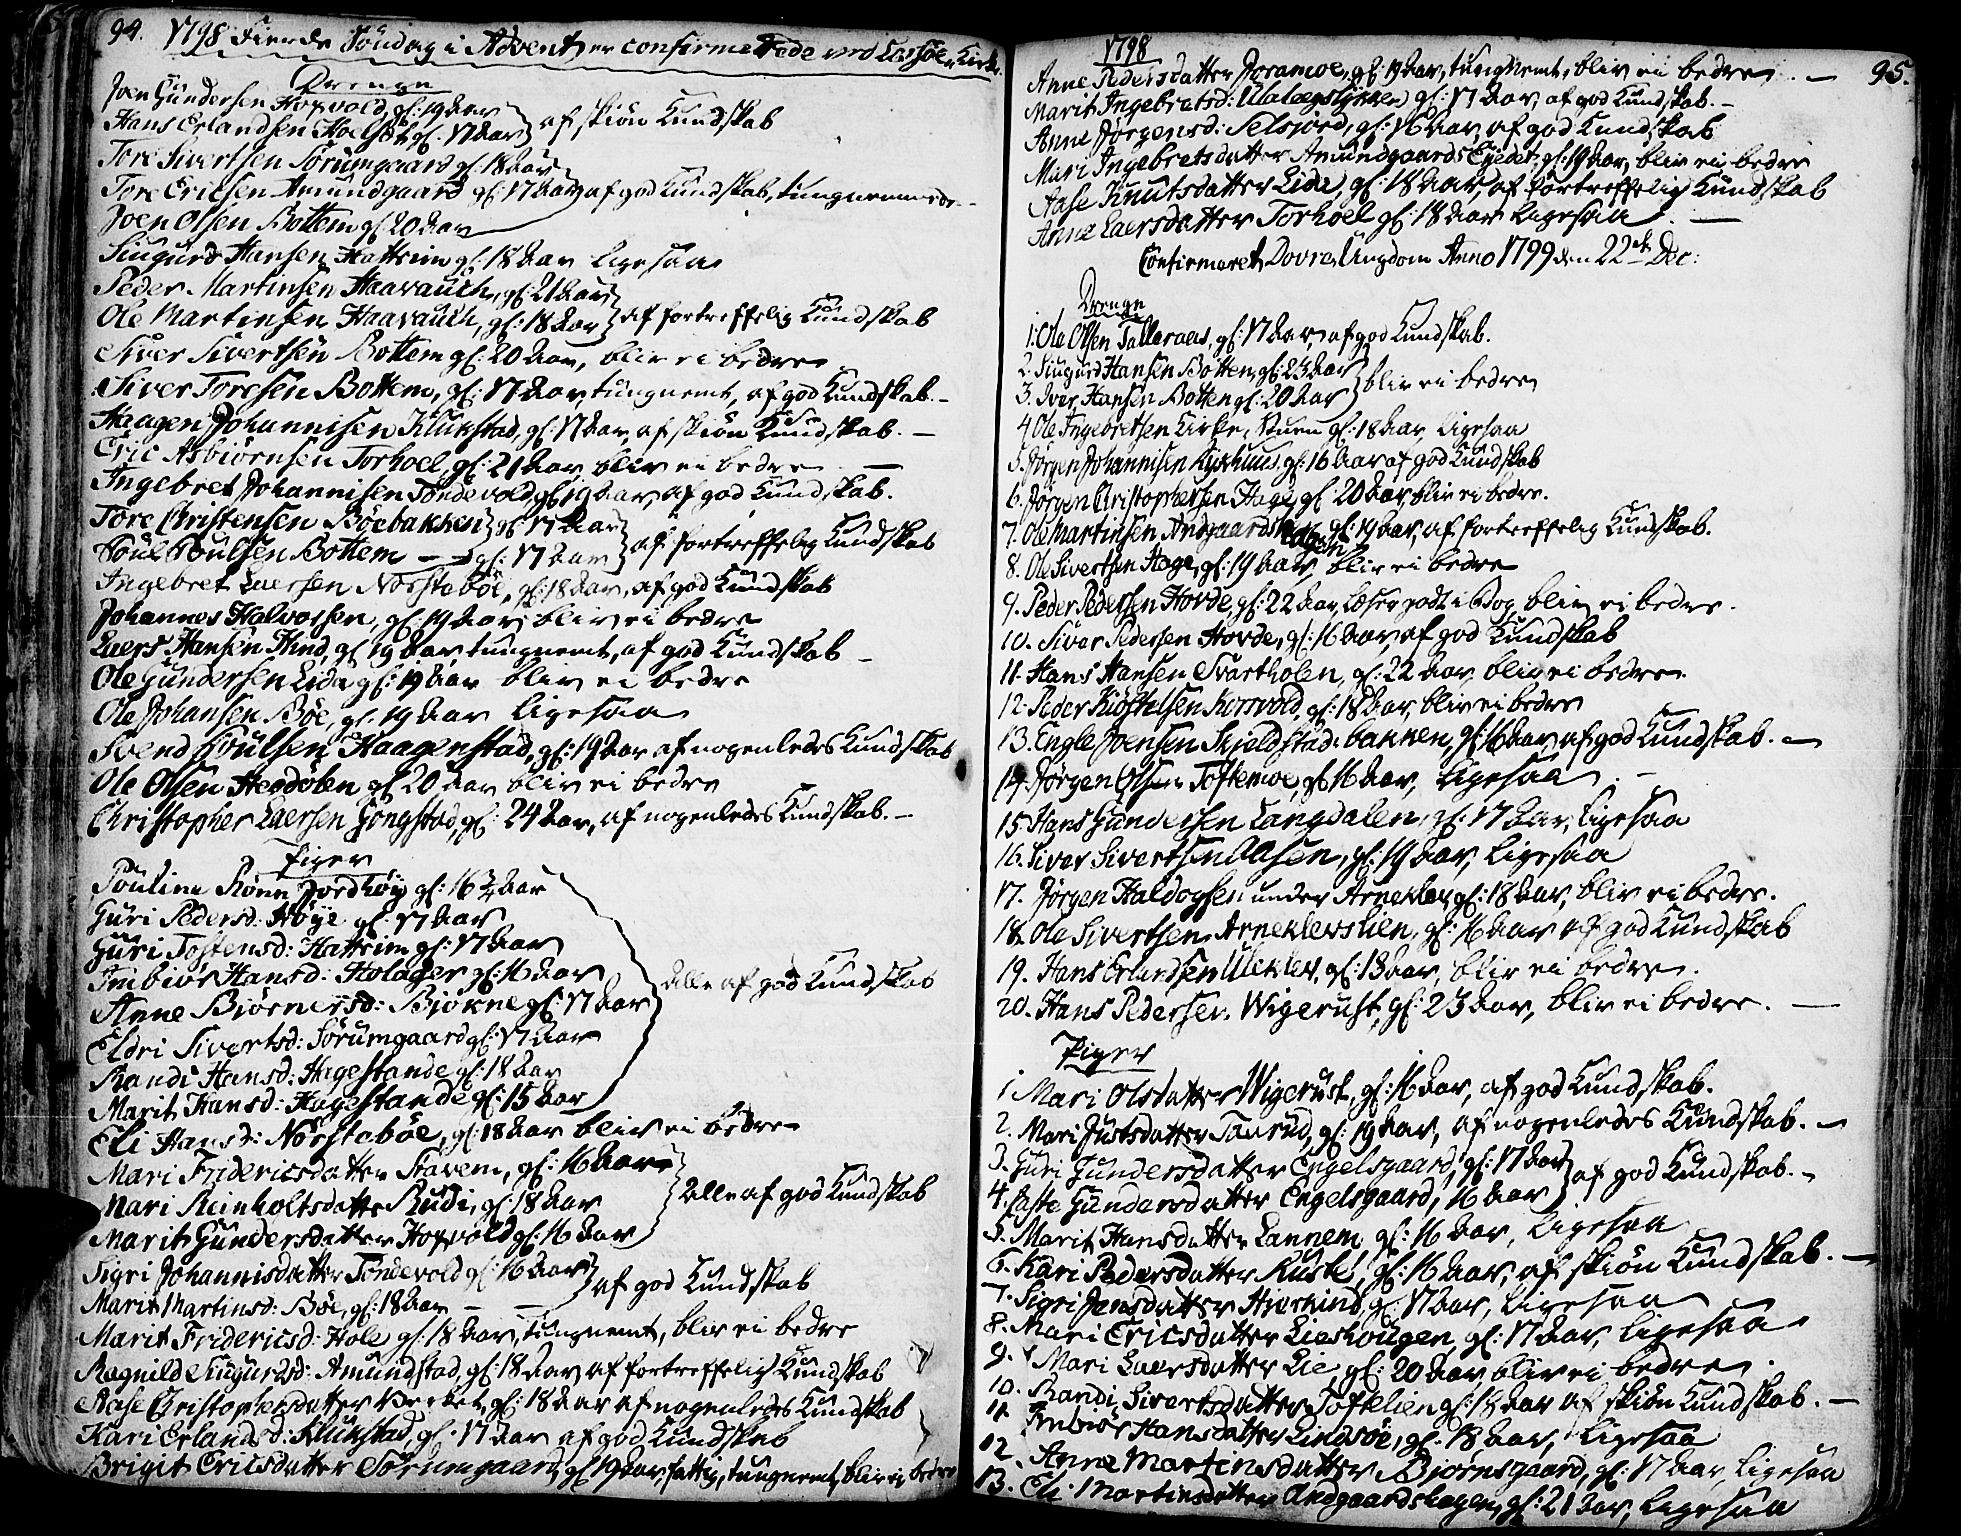 94. 1798 Fierde Söndag i Advent er confirmerede ved Lessøe Kirke
Drenge
Joen Gundersen Hopvold, gl: 19 Aar
Hans Erlandsen Hoelsøe gl: 17 Aar } af skiön Kundskab
Tore Sivertsen Sörumgaard gl: 18 Aar
Tore Ericsen Amundgaard gl: 17 Aar } af god Kundskab, tungnemmede
Joen Olsen Bottem gl 20 Aar
Siugurd Hansen Hattrim gl: 18 Aar Ligesaa
Peder Martinsen Haavauch, gl: 21 Aar
Ole Martinsen Haavauch, gl: 18 Aar } af fortreffelig Kundskab
Siver Sivertsen Bottem gl: 20 Aar, bliv ei bedre
Siver Toresen Bottem, gl: 17 Aar tungnemt, af god Kundskab. -
Haagen Johannisen Klukstad, gl: 17 Aar, af skiön Kundskab. -
Eric Asbiörnsen Torhoel, gl: 21 Aar bliv ei bedre -
Ingebret Johannisen Töndevold gl: 19 Aar, af god Kundskab.
Tore Christensen Böebakken } gl: 17 Aar
Poul Poulsen Bottem - gl: 17 Aar } af fortreffelig Kundskab
Ingebret Laersen Norsteböe, gl: 18 Aar, af god Kundskab
Johannes Halvorsen, gl: 19 Aar bliv ei bedre
Laers Hansen Hind, gl 19 Aar tungnemt, af god Kundskab -
Ole Gundersen Lida gl: 19 Aar bliv ei bedre
Ole Johansen Böe, gl: 19 Aar Ligesaa
Svend Poulsen Haagenstad, gl: 19 Aar af nogenledes Kundskab
Ole Olsen gl 20 Aar bliv ei bedre
Christopher Laersen Gongstad, gl: 24 Aar, af nogenledes Kundskab. -
Piger
Pouline Rönn Jordhöy gl: 16 3/4 Aar
Guri Pedersd: Höye gl 17 Aar
Guri Tostensd: Hattrim gl: 17 Aar
Imbiör Hansd: Holager gl: 16 Aar
Anne Biörnersd: Bjökne gl: 17 Aar } Alle af god Kundskab
Eldri Sivertsd: Sörumgaard gl: 17 Aar
Randi Hansd: Hagestande gl: 18 Aar
Marit Hansd: Hagestande gl: 15 Aar
Eli Hansd: Norsteböe, gl: 18 Aar bliv ei bedre
Mari Fridericsdatter Stavem, gl: 16 Aar
Mari Reinholtsdatter Rudi, gl: 18 Aar } Alle af god Kundskab
Marit Gundersdatter Hopvold gl: 16 Aar
Sigri Johannisdatter Töndevold gl: 16 Aar
Marit Martinsd: Böe, gl: 18 Aar - - } af god Kundskab
Marit Fridericsd: Hole gl: 18 Aar, tungnemt, bliv ei bedre
Ragnild Siugurdsd: Amundstad, gl: 18 Aar af fortreffelig Kundskab
Aase Christophersdatter Verket, gl: 18 Aar af nogenledes Kundskab
Kari Erlandsd: Klukstad gl: 17 Aar af god Kundskab
Brigit Ericsdatter Sörumgaard, gl 19 Aar, fattig, tungnemt, bliv ei bedre
1798
95.
Anne Pedersdatter Joramoe, gl: 19 Aar, tungnemt, bliv ei bedre. -
Marit Ingebretsd: gl: 17 Aar, af god Kundskab. -
Anne Jörgensd: Selsjord, gl: 16 Aar, af god Kundskab
Mari Ingebretsdatter Amundgaards Ejedet, gl: 19 Aar, bliv ei bedre
Aase Knutsdatter Lida, gl: 18 Aar, af fortreffelig Kundskab
Anne Laersdatter Torhoel gl: 18 Aar Ligesaa. -
Confirmeret Dovre Ungdom Anno 1799 den 22de Dec:
Drenge
1. Ole Olsen Talleraas, gl: 17 Aar, af god Kundskab.
2. Siugurd Hansen Botten gl: 23 Aar
3. Iver Hansen Botten gl: 20 Aar } bliv ei bedre
4 Ole Ingebretsen Kirke Stuen gl: 18 Aar, Ligesaa
5. Jörgen Johannisen Kirkhuus, gl: 16 Aar af god Kundskab
6. Jörgen Christophersen Hage, gl: 20 Aar, bliv ei bedre.
7. Ole Martinsen Andgaardshagen, gl: 19 Aar, af fortreffelig Kundskab.
8. Ole Sivertsen Hage, gl: 19 Aar, bliv ei bedre
9. Peder Pedersen Hovde, gl: 22 Aar, Læser godt i Bog bliv ei bedre.
10. Siver Pedersen Hovde, gl: 16 Aar, af god Kundskab
11. Hans Hansen Svartholen, gl: 22 Aar, bliv ei bedre.
12. Peder Korsvold, gl: 18 Aar, bliv ei bedre
13. Engle Joensen Skjelstadbakken, gl: 16 Aar, af god Kundskab. -
14. Jörgen Olsen Toftemoe, gl: 16 Aar, Ligesaa. -
15. Hans Gundersen Langdalen, gl: 17 Aar, Ligesaa
16. Siver Sivertsen Aasen, gl: 19 Aar, Ligesaa
17. Jörgen Haldogsen under Arneklev, gl: 18 Aar, bliv ei bedre.
18. Ole Sivertsen Arneklevslien, gl: 16 Aar af god Kundskab
19. Hans Erlandsen Ulekler, gl: 18 Aar, bliv ei bedre.
20. Hans Pedersen Wigerust, gl: 23 Aar, bliv ei bedre. -
Piger
1 Mari Olsdatter Wigerust, gl: 16 Aar, af god Kundskab.
2. Mari Justsdatter Tourud, gl: 19 Aar, af nogenledes Kundskab. -
3. Guri Gundersdatter Engelsgaard, gl: 17 Aar
4. Gundersdatter Engelsgaard, 16 Aar } af god Kundskab. -
5. Marit Hansdatter Lannem gl: 16 Aar, Ligesaa
6. Kari Pedersdatter Ruste, gl: 16 Aar, af skiön Kundskab. -
7. Sigri Jensdatter Hjerkind, gl: 17 Aar, Ligesaa
8. Mari Ericsdatter Lieshougen, gl: 17 Aar, Ligesaa
9. Mari Laersdatter Lie, gl: 20 Aar, bliv ei bedre.
10. Randi Sivertsdatter Toftelien gl: 18 Aar af skiön Kundskab. -
11. Imbiör Hansdatter Lindsöe, gl: 18 Aar, Ligesaa
12. Anne Martinsdatter Bjornsgaard, gl: 17 Aar, Ligesaa
13. Eli Martinsdatter Andgaardshagen, gl: 21 Aar, Ligesaa